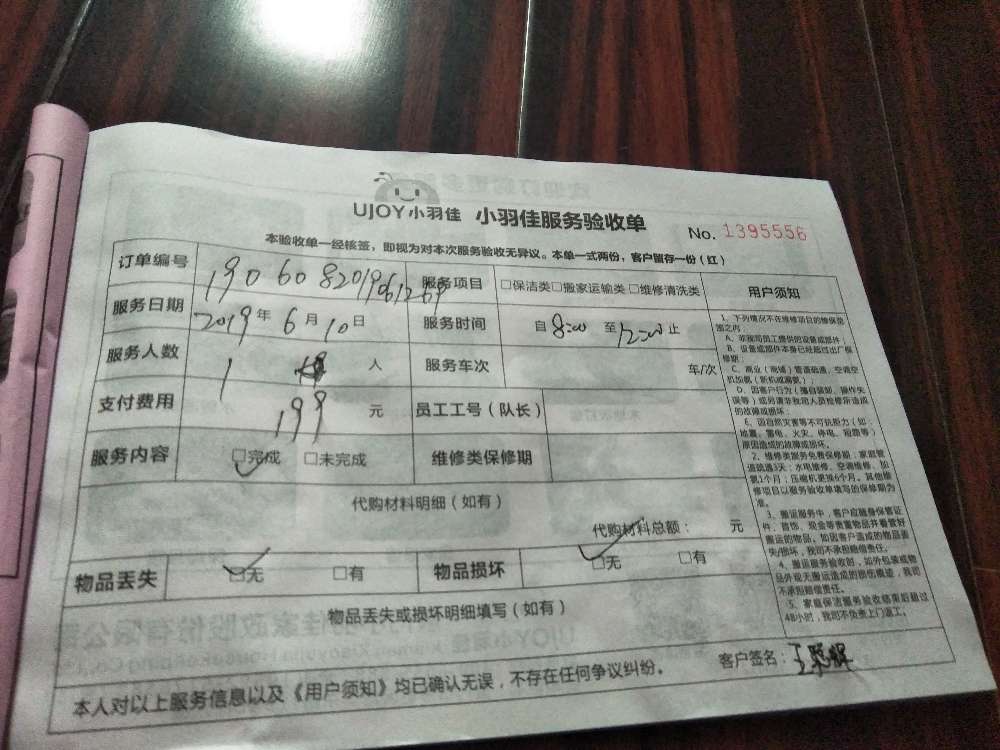 UJOY小羽佳 小羽佳服务验收单
No. 1395556
本验收单一经核签，即视为对本次服务验收无异议。本单一式两份，客户留存一份（红）
订单编号 服务项目 □保洁类□搬家运输类□维修清洗类 用户须知
服务日期 2019年6月10日 服务时间 自8:00至12:00止
服务人数 1 人 服务车次 车/次
支付费用 199 元 员工工号（队长）
服务内容 □完成 □未完成 维修类保修期
代购材料明细（如有）
代购材料总额： 元
物品丢失 □无 □有 物品损坏 □无 □有
物品丢失或损坏明细填写（如有）
本人对以上服务信息以及《用户须知》均已确认无误，不存在任何争议纠纷。
客户签名：
1、下列情况不在维修项目的维保范
围之内
A、非我司员工提供的设备或部件
B、设备或部件本身已经超过出厂保
修期：
C、商业（商铺）管道疏通、空调空
机加氨（新机或漏氨）；
D、因客户行为（擅自装卸、操作失
误等）或另请非我司人员检修所造成
的故障或损坏；
E、因自然灾害等不可抗拒力（如：
地震、雷电、火灾、停电、短路等）
原因造成的故障或损坏。
2、维修类服务免费保修期：家庭管
道疏通3天；水电维修、空调维修、加
氨1个月；压缩机更换6个月。其他维
修项目以服务验收单填写的保修期为
准。
3、搬运服务中，客户应随身保管证
件、首饰、现金等贵重物品并看管好
搬运的物品。如因客户造成的物品丢
失/损坏，我司不承担赔偿责任。
4、搬运服务验收时，如外包装或物
品外观无搬运造成的损伤痕迹，我司
不承担赔偿责任。
5、家庭保洁服务验收结束后超过
48小时，我司不负责上门返工。